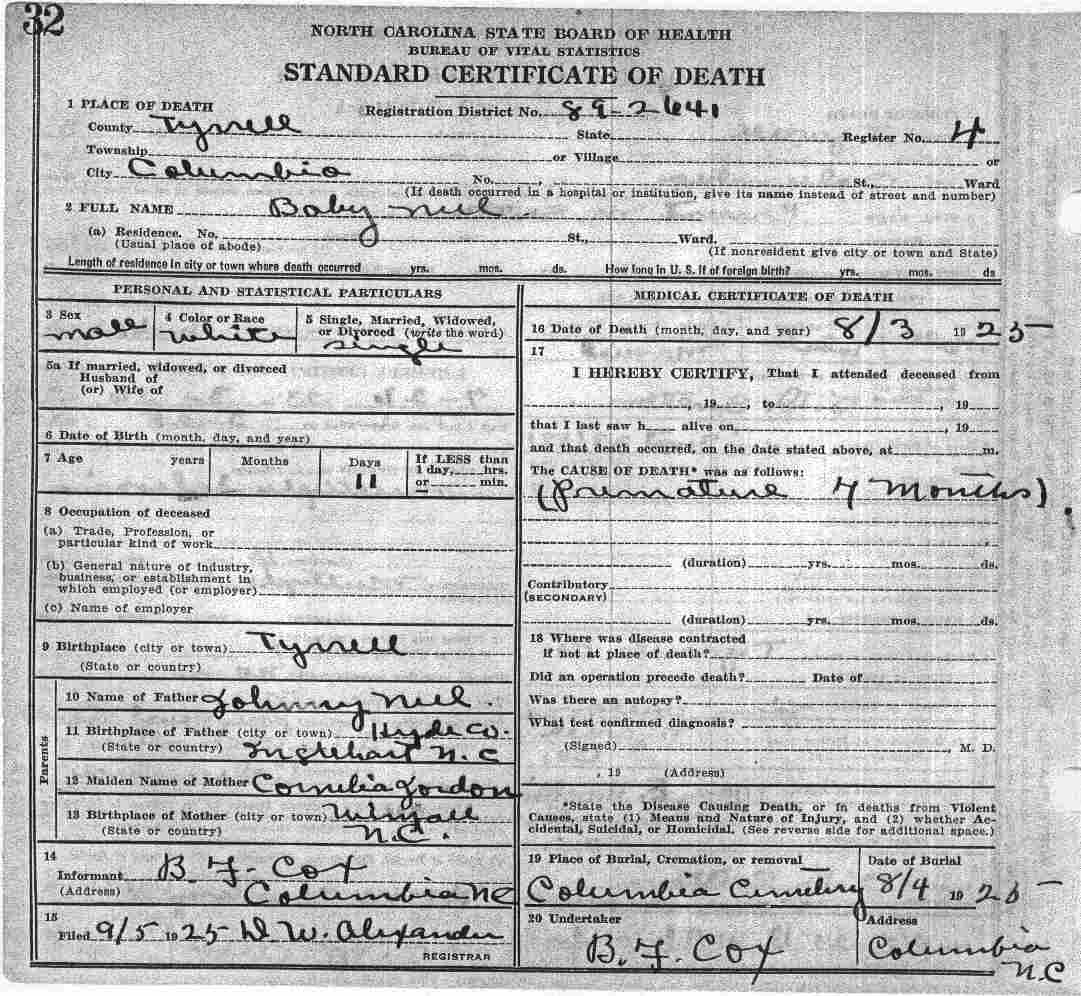 32
NORTH CAROLINA STATE BOARD OF HEALTH
BUREAU OF VITAL STATISTICS
STANDARD CERTIFICATE OF DEATH
1 PLACE OF DEATH Registration District No. 89-2641
County Tyrrell State Register No. 4
Township or Village or
City Columbia No. , St., Ward
(If death occurred in a hospital or institution, give its name instead of street and number)
2 FULL NAME Baby
(a) Residence. No. St., Ward,
(Usual place of abode) (If nonresident give city or town and State)
Length of residence in city or town where death occurred yrs. mos. ds. How long in U. S. if of foreign birth? yrs. mos. ds
PERSONAL AND STATISTICAL PARTICULARS
3 Sex 4 Color or Race 5 Single, Married, Widowed,
or Divorced (write the word)
male white single
5a If married, widowed, or divorced
Husband of
(or) Wife of
6 Date of Birth (month, day, and year)
7 Age years Months Days If LESS than
1 day, hrs.
or min.
11
8 Occupation of deceased
(a) Trade, Profession, or
particular kind of work
(b) General nature of industry,
business, or establishment in
which employed (or employer)
(c) Name of employer
9 Birthplace (city or town) Tyrrell
(State or country)
Parents
10 Name of Father Johnny
11 Birthplace of Father (city or town) Hyde Co.
(State or country) N.C
12 Maiden Name of Mother Cornelia Gordon
13 Birthplace of Mother (city or town)
(State or country) N.C.
14
Informant B. F. Cox
(Address) Columbia NC
15
Filed 9/5 1925 D. W. Alexander
REGISTRAR
MEDICAL CERTIFICATE OF DEATH
16 Date of Death (month, day, and year) 8/3 1925
17
I HEREBY CERTIFY, That I attended deceased from
, 19 , to , 19
that I last saw h alive on , 19
and that death occurred, on the date stated above, at m.
The CAUSE OF DEATH* was as follows:
(Premature 7 Months)
(duration) yrs. mos. ds.
Contributory
(SECONDARY)
(duration) yrs. mos. ds.
18 Where was disease contracted
if not at place of death?
Did an operation precede death? Date of
Was there an autopsy?
What test confirmed diagnosis?
(Signed) , M. D.
, 19 (Address)
*State the Disease Causing Death, or in deaths from Violent
Causes, state (1) Means and Nature of Injury, and (2) whether Ac-
cidental, Suicidal, or Homicidal. (See reverse side for additional space.)
19 Place of Burial, Cremation, or removal Date of Burial
Columbia Cemetery 8/4 1925
20 Undertaker Address
B. F. Cox Columbia
N.C